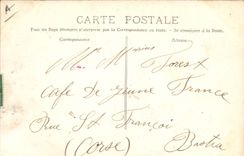 CARTE POSTALE
Tous les Pays étrangers n'acceptent pas la Correspondance au recto. — Se renseigner à la Poste.
Correspondance
Adresse
Marius
Forest
Café de Jeune France
Rue St François
Bastia
(Corse)